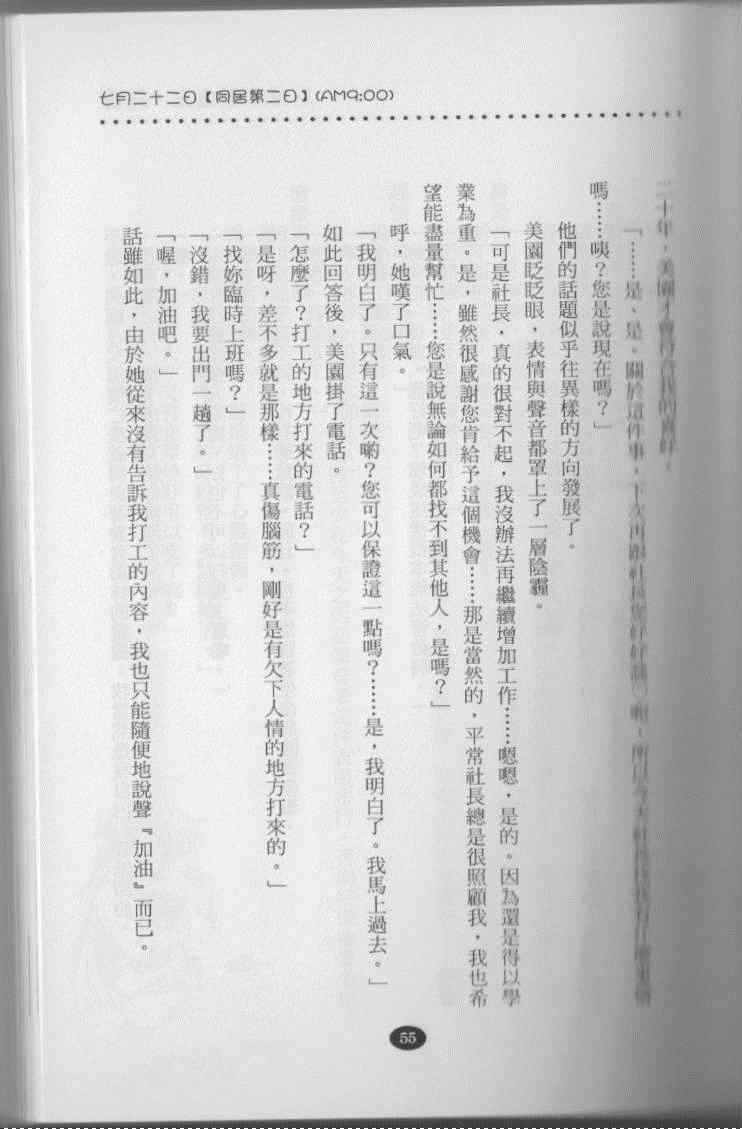 七月二十二日【同居第二日】(AM9:00)
二十年，美園才會
「……是、是。關於這件事，下次再跟社長
嗎……咦？您是說現在嗎？」
他們的話題似乎往異樣的方向發展了。
美園眨眨眼，表情與聲音都罩上了一層陰霾。
「可是社長，真的很對不起，我沒辦法再繼續增加工作……嗯嗯，是的。因為還是得以學
業為重。是，雖然很感謝您肯給予這個機會……那是當然的，平常社長總是很照顧我，我也希
望能盡量幫忙……您是說無論如何都找不到其他人，是嗎？」
呼，她嘆了口氣。
「我明白了。只有這一次喲？您可以保證這一點嗎？……是，我明白了。我馬上過去。」
如此回答後，美園掛了電話。
「怎麼了？打工的地方打來的電話？」
「是呀，差不多就是那樣……真傷腦筋，剛好是有欠下人情的地方打來的。」
「找妳臨時上班嗎？」
「沒錯，我要出門一趟了。」
「喔，加油吧。」
話雖如此，由於她從來沒有告訴我打工的內容，我也只能隨便地說聲『加油』而已。
55